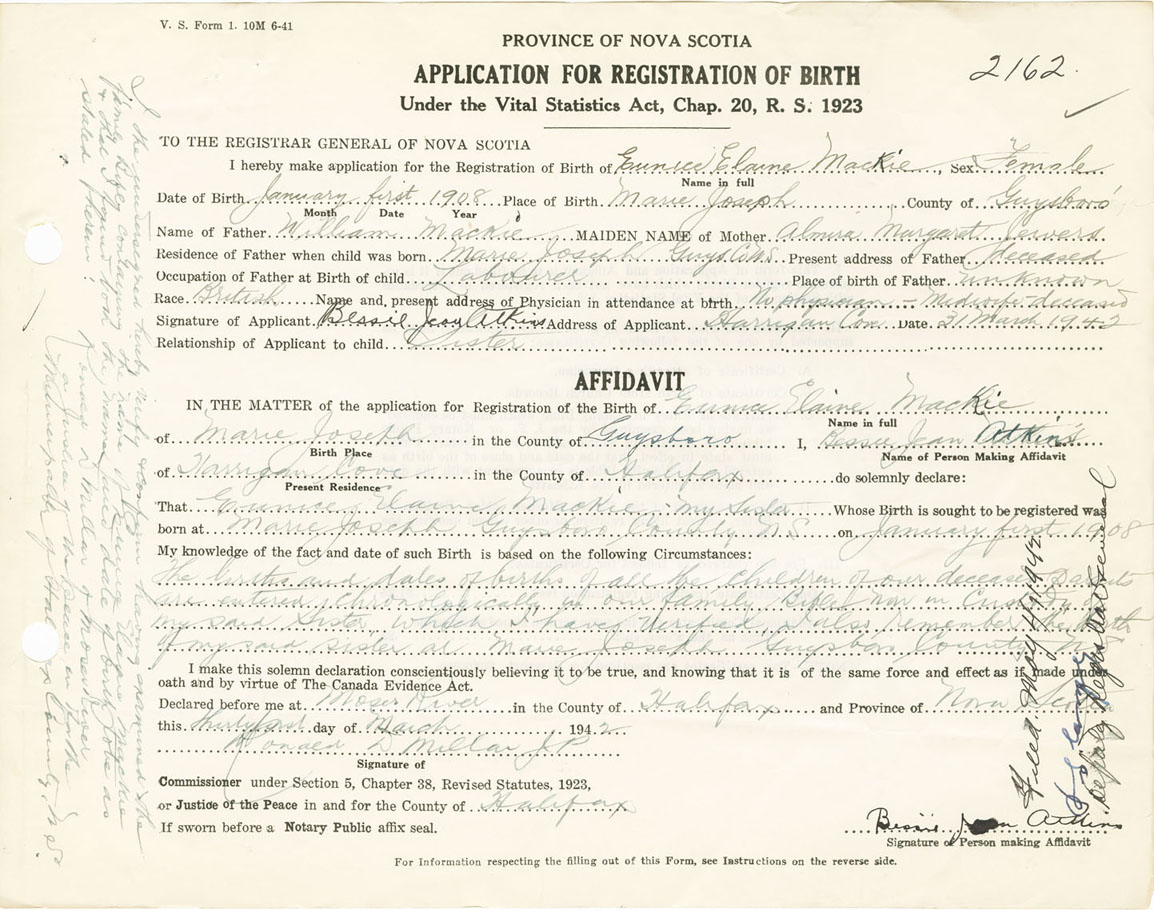 V. S. Form 1. 10M 6-41
PROVINCE OF NOVA SCOTIA
2162.
APPLICATION FOR REGISTRATION OF BIRTH
Under the Vital Statistics Act, Chap. 20, R. S. 1923
TO THE REGISTRAR GENERAL OF NOVA SCOTIA
I hereby make application for the Registration of Birth of Eunice Elaine Mackie, Sex Female
Name in full
Date of Birth January first 1908 Place of Birth Marie Joseph County of Guysboro
Month Date Year
Name of Father William Mackie MAIDEN NAME of Mother Almira Margaret
Residence of Father when child was born Marie Joseph Guys Co NS Present address of Father deceased
Occupation of Father at Birth of child Labourer Place of birth of Father unknown
Race British Name and present address of Physician in attendance at birth No physician - Midwife deceased
Signature of Applicant Bessie Jean Atkins Address of Applicant Harrigan Cove Date 31 March 1942
Relationship of Applicant to child Sister
AFFIDAVIT
IN THE MATTER of the application for Registration of the Birth of Eunice Elaine Mackie
Name in full
of Marie Joseph in the County of Guysboro I, Bessie Jean Atkins
Birth Place Name of Person Making Affidavit
of Harrigan Cove in the County of Halifax do solemnly declare:
Present Residence
That Eunice Elaine Mackie my Sister Whose Birth is sought to be registered was
born at Marie Joseph Guysboro County N S on January first 1908
My knowledge of the fact and date of such Birth is based on the following Circumstances:
The births and dates of births of all the children of our deceased Parents
are entered chronologically in our family Bible now in Custody of
my said Sister, which I have verified, I also remember the birth
of my said sister at Marie Joseph Guysboro County N S
I make this solemn declaration conscientiously believing it to be true, and knowing that it is of the same force and effect as if made under
oath and by virtue of The Canada Evidence Act.
Declared before me at Moser River in the County of Halifax and Province of Nova Scotia
this thirty first day of March 1942
Ronald D Millar JP
Signature of
Commissioner under Section 5, Chapter 38, Revised Statutes, 1923,
or Justice of the Peace in and for the County of Halifax
If sworn before a Notary Public affix seal.
Bessie Jean Atkins
Signature of Person making Affidavit
For Information respecting the filling out of this Form, see Instructions on the reverse side.
I the undersigned hereby certify from having examined the
family Bible containing the name of Eunice Elaine Mackie
that I found both the name and date of birth to be as
stated herein.
Ronald D Millar Moser River
a Justice of the Peace in for the
Municipality of Halifax County, N S.
Filed May 4, 1942
Deputy Registrar General